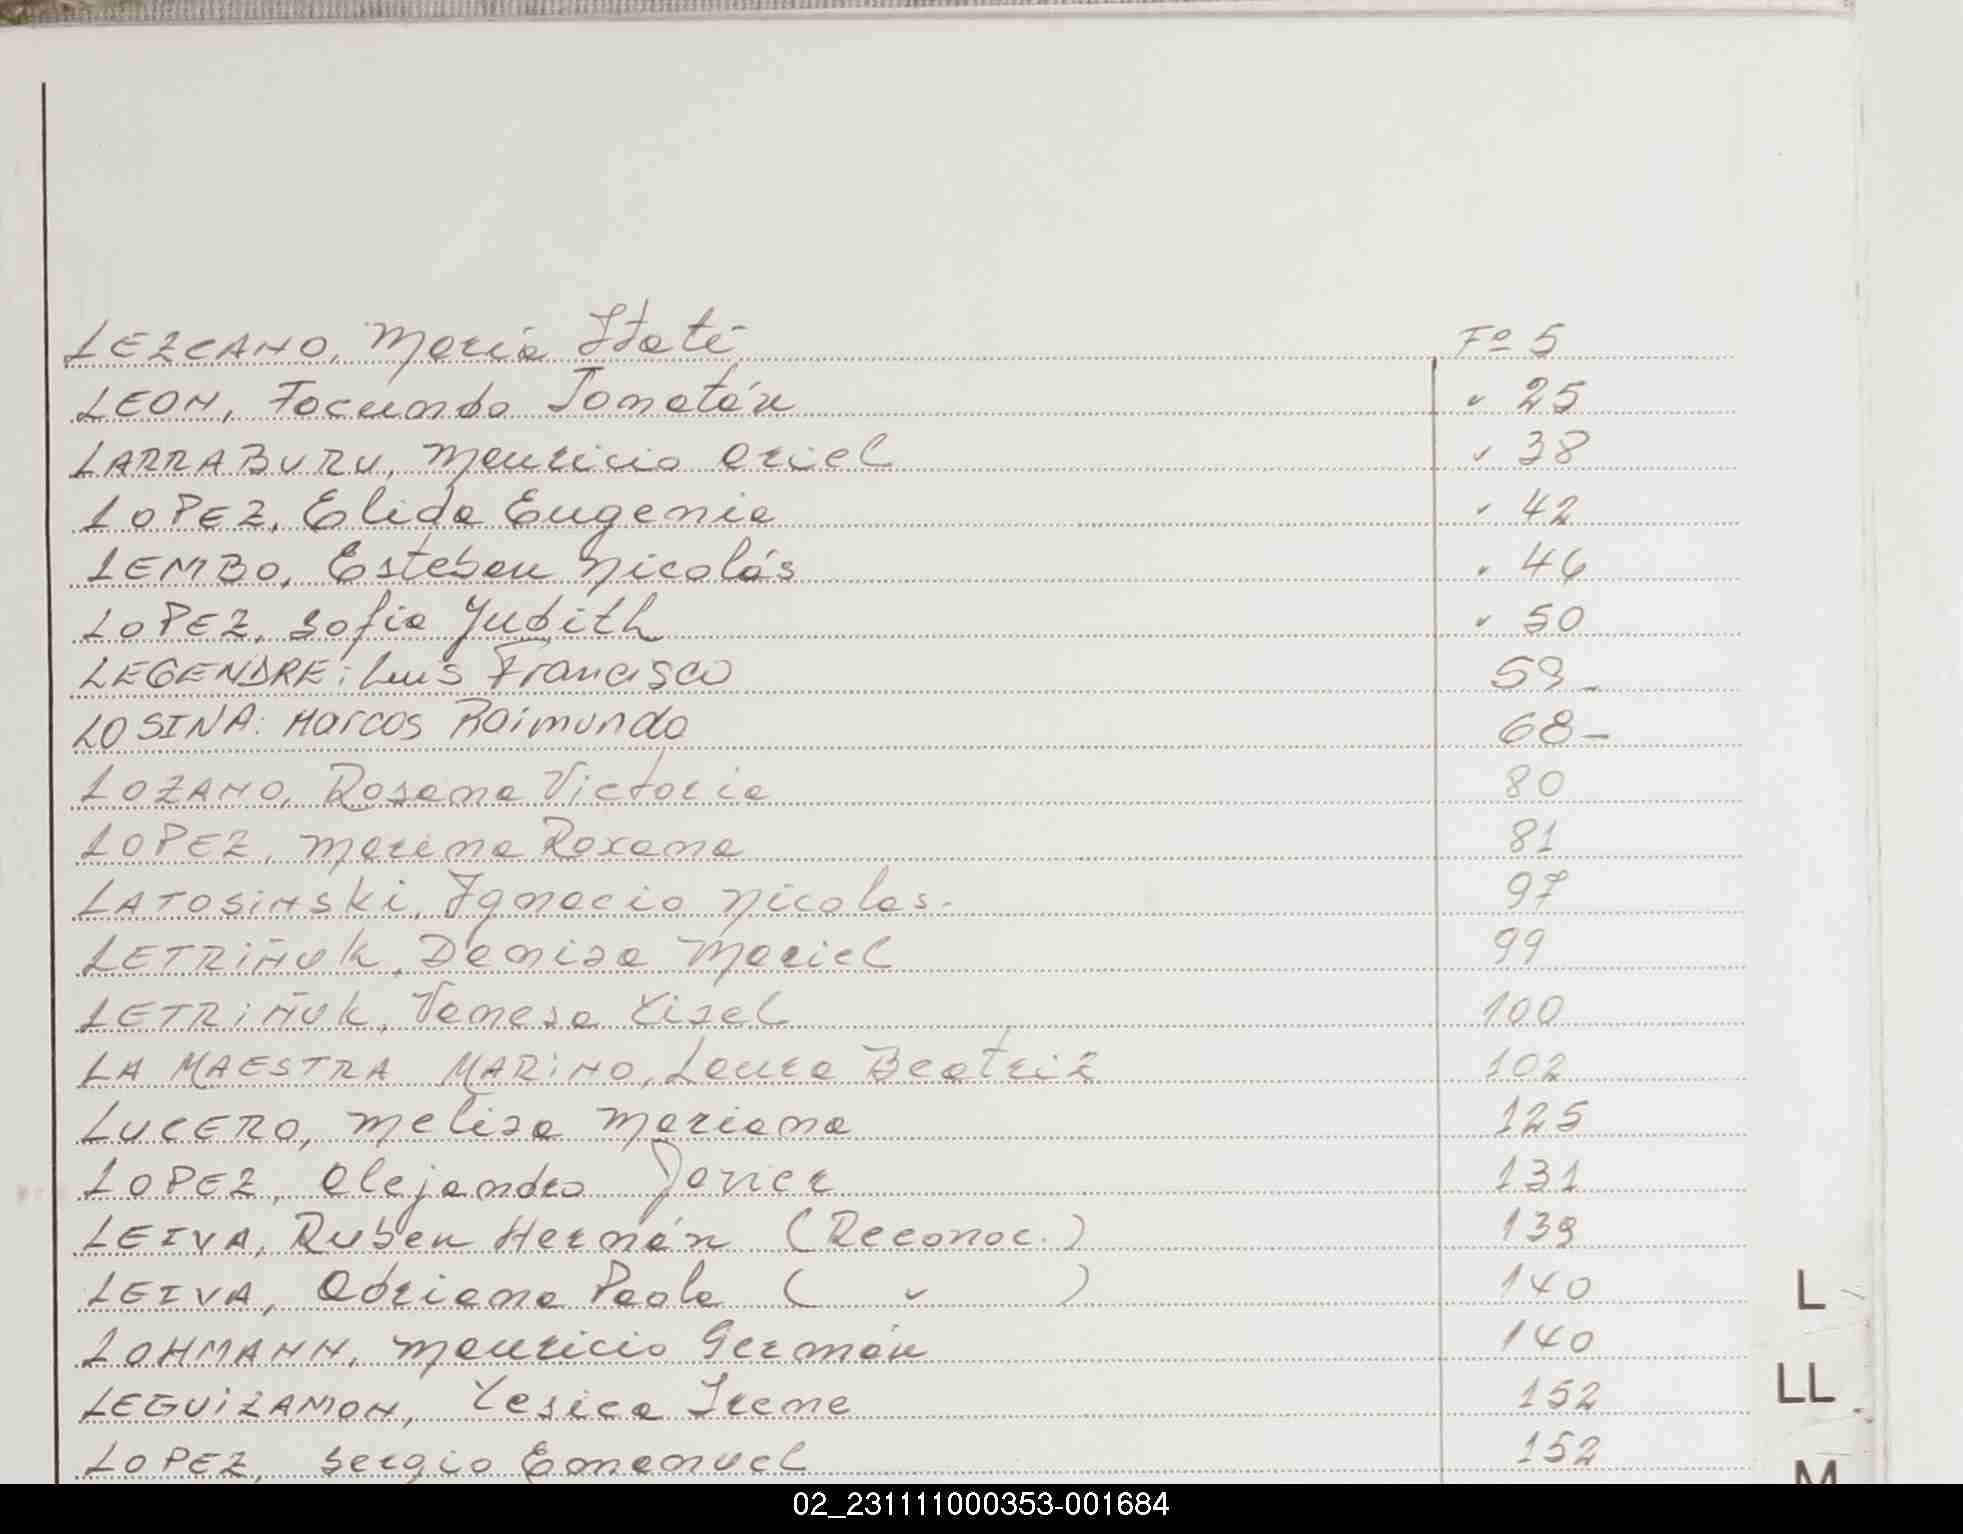 LEZCANO, María Itatí Fº 5
LEON, Facundo Jonatán " 25
LARRABURU, Mauricio Oriel " 38
LOPEZ, Elida Eugenia " 42
LEMBO, Esteban Nicolás " 46
LOPEZ, Sofia Judith " 50
LEGENDRE: Luis Francisco 59-
LOSINA: Marcos Raimundo 68-
LOZANO, Rosana Victoria 80
LOPEZ, Marina Roxana 81
LATOSiNSki, Ignacio Nicolas. 97
LETRiÑUk, Denisa Mariel 99
LETRiÑUk, Vanesa Yisel 100
LA MAESTRA MARiNO, Laura Beatriz 102
LUCERO, Melisa Mariana 125
LOPEZ, Alejandro Javier 131
LEIVA, Ruben Hernán (Reconoc.) 139
LEIVA, Adriana Paola ( " ) 140
LOHMANN, Mauricio Germán 140
LEGUiZAMON, Yesica Irene 152
LOPEZ, Sergio Emanuel 152
L
LL
M
02_231111000353-001684